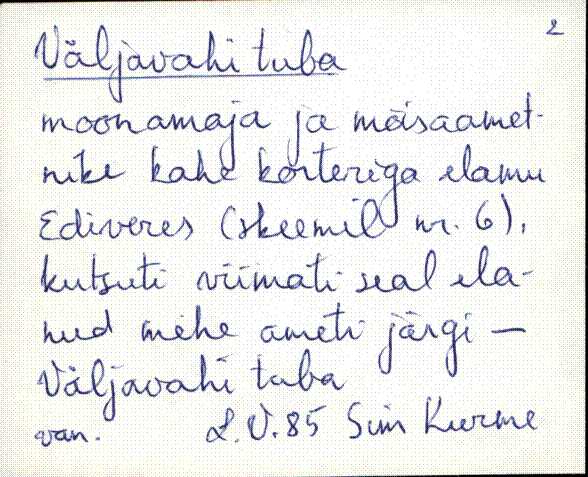 2
Väljavahi tuba
moonamaja ja mõisaamet-
nike kahe korteriga elamu
Ediveres (skeemil nr. 6),
kutsuti viimati seal ela-
nud mehe ameti järgi —
Väljavahi tuba
van. L.V.85 Siim Kurme